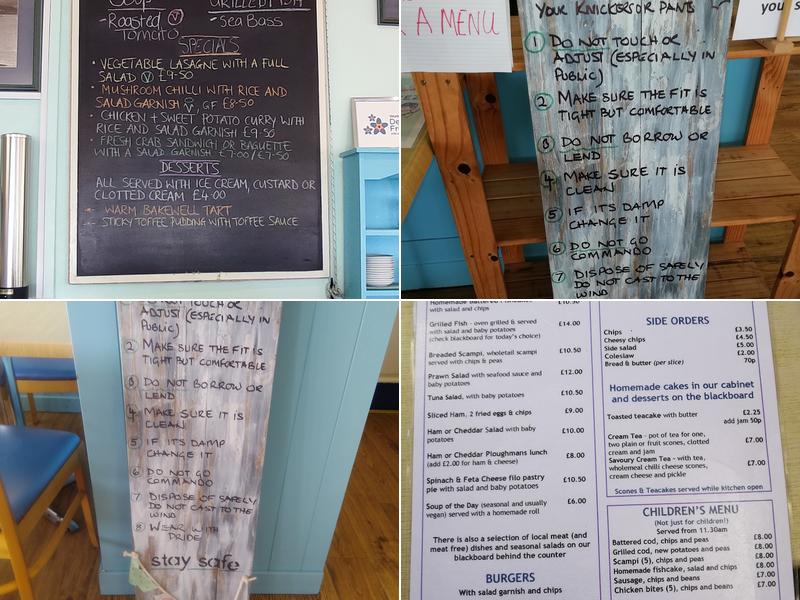 Soup
GRILLED FISH
- Roasted Ⓥ
Tomato
- Sea Bass
SPECIALS
• VEGETABLE LASAGNE WITH A FULL
SALAD Ⓥ £9-50
• MUSHROOM CHILLI WITH RICE AND
SALAD GARNISH V, GF £8-50
• CHICKEN + SWEET POTATO CURRY WITH
RICE AND SALAD GARNISH £9-50
• FRESH CRAB SANDWICH OR BAGUETTE
WITH A SALAD GARNISH £7-00/£7-50
DESSERTS
ALL SERVED WITH ICE CREAM, CUSTARD OR
CLOTTED CREAM £4-00
- WARM BAKEWELL TART
- STICKY TOFFEE PUDDING WITH TOFFEE SAUCE
A MENU
YOUR KNICKERS OR PANTS
you s
1 DO NOT TOUCH OR
ADJUST (ESPECIALLY IN
PUBLIC)
2 MAKE SURE THE FIT IS
TIGHT BUT COMFORTABLE
3 DO NOT BORROW OR
LEND
4 MAKE SURE IT IS
CLEAN
5 IF ITS DAMP
CHANGE IT
6 DO NOT GO
COMMANDO
7 DISPOSE OF SAFELY
DO NOT CAST TO THE
WIND
ADJUST (ESPECIALLY IN
PUBLIC)
2 MAKE SURE THE FIT IS
TIGHT BUT COMFORTABLE
3 DO NOT BORROW OR
LEND
4 MAKE SURE IT IS
CLEAN
5 IF ITS DAMP
CHANGE IT
6 DO NOT GO
COMMANDO
7 DISPOSE OF SAFELY
DO NOT CAST TO THE
WIND
8 WEAR WITH
PRIDE
stay safe
Homemade Battered Fishcakes £10.50
with salad and chips
Grilled Fish - oven grilled & served £14.00
with salad and baby potatoes
(check blackboard for today's choice)
Breaded Scampi, wholetail scampi £10.50
served with chips & peas
Prawn Salad with seafood sauce and £12.00
baby potatoes
Tuna Salad, with baby potatoes £10.50
Sliced Ham, 2 fried eggs & chips £9.00
Ham or Cheddar Salad with baby £10.00
potatoes
Ham or Cheddar Ploughmans lunch £8.00
(add £2.00 for ham & cheese)
Spinach & Feta Cheese filo pastry £10.50
pie with salad and baby potatoes
Soup of the Day (seasonal and usually £6.00
vegan) served with a homemade roll
There is also a selection of local meat (and
meat free) dishes and seasonal salads on our
blackboard behind the counter
BURGERS
With salad garnish and chips
SIDE ORDERS
Chips £3.50
Cheesy chips £4.50
Side salad £5.00
Coleslaw £2.00
Bread & butter (per slice) 70p
Homemade cakes in our cabinet
and desserts on the blackboard
Toasted teacake with butter £2.25
add jam 50p
Cream Tea - pot of tea for one, £7.00
two plain or fruit scones, clotted
cream and jam
Savoury Cream Tea - with tea, £7.00
wholemeal chilli cheese scones,
cream cheese and pickle
Scones & Teacakes served while kitchen open
CHILDREN'S MENU
(Not just for children!)
Served from 11.30am
Battered cod, chips and peas £8.00
Grilled cod, new potatoes and peas £8.00
Scampi (5), chips and peas £8.00
Homemade fishcake, salad and chips £8.00
Sausage, chips and beans £7.00
Chicken bites (5), chips and beans £7.00